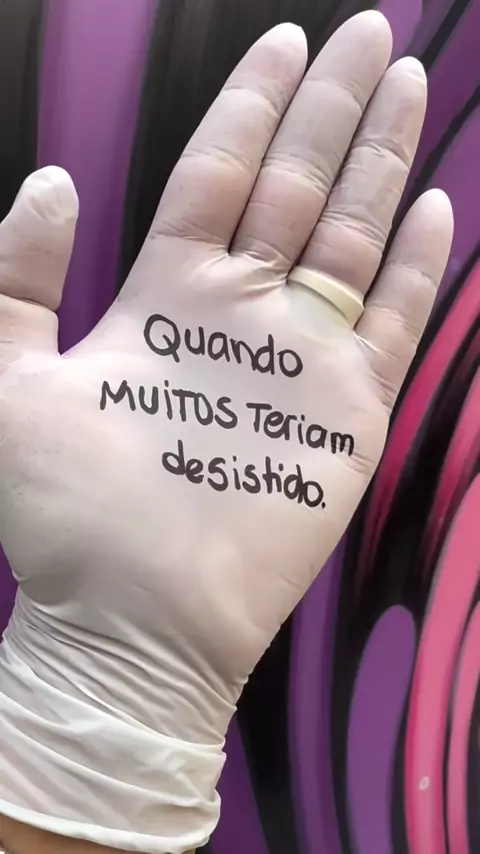 Quando
MUITOS Teriam
desistido.